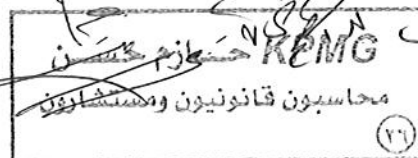 KPMG حازم حسن
محاسبون قانونيون ومستشارون
(٢٦)